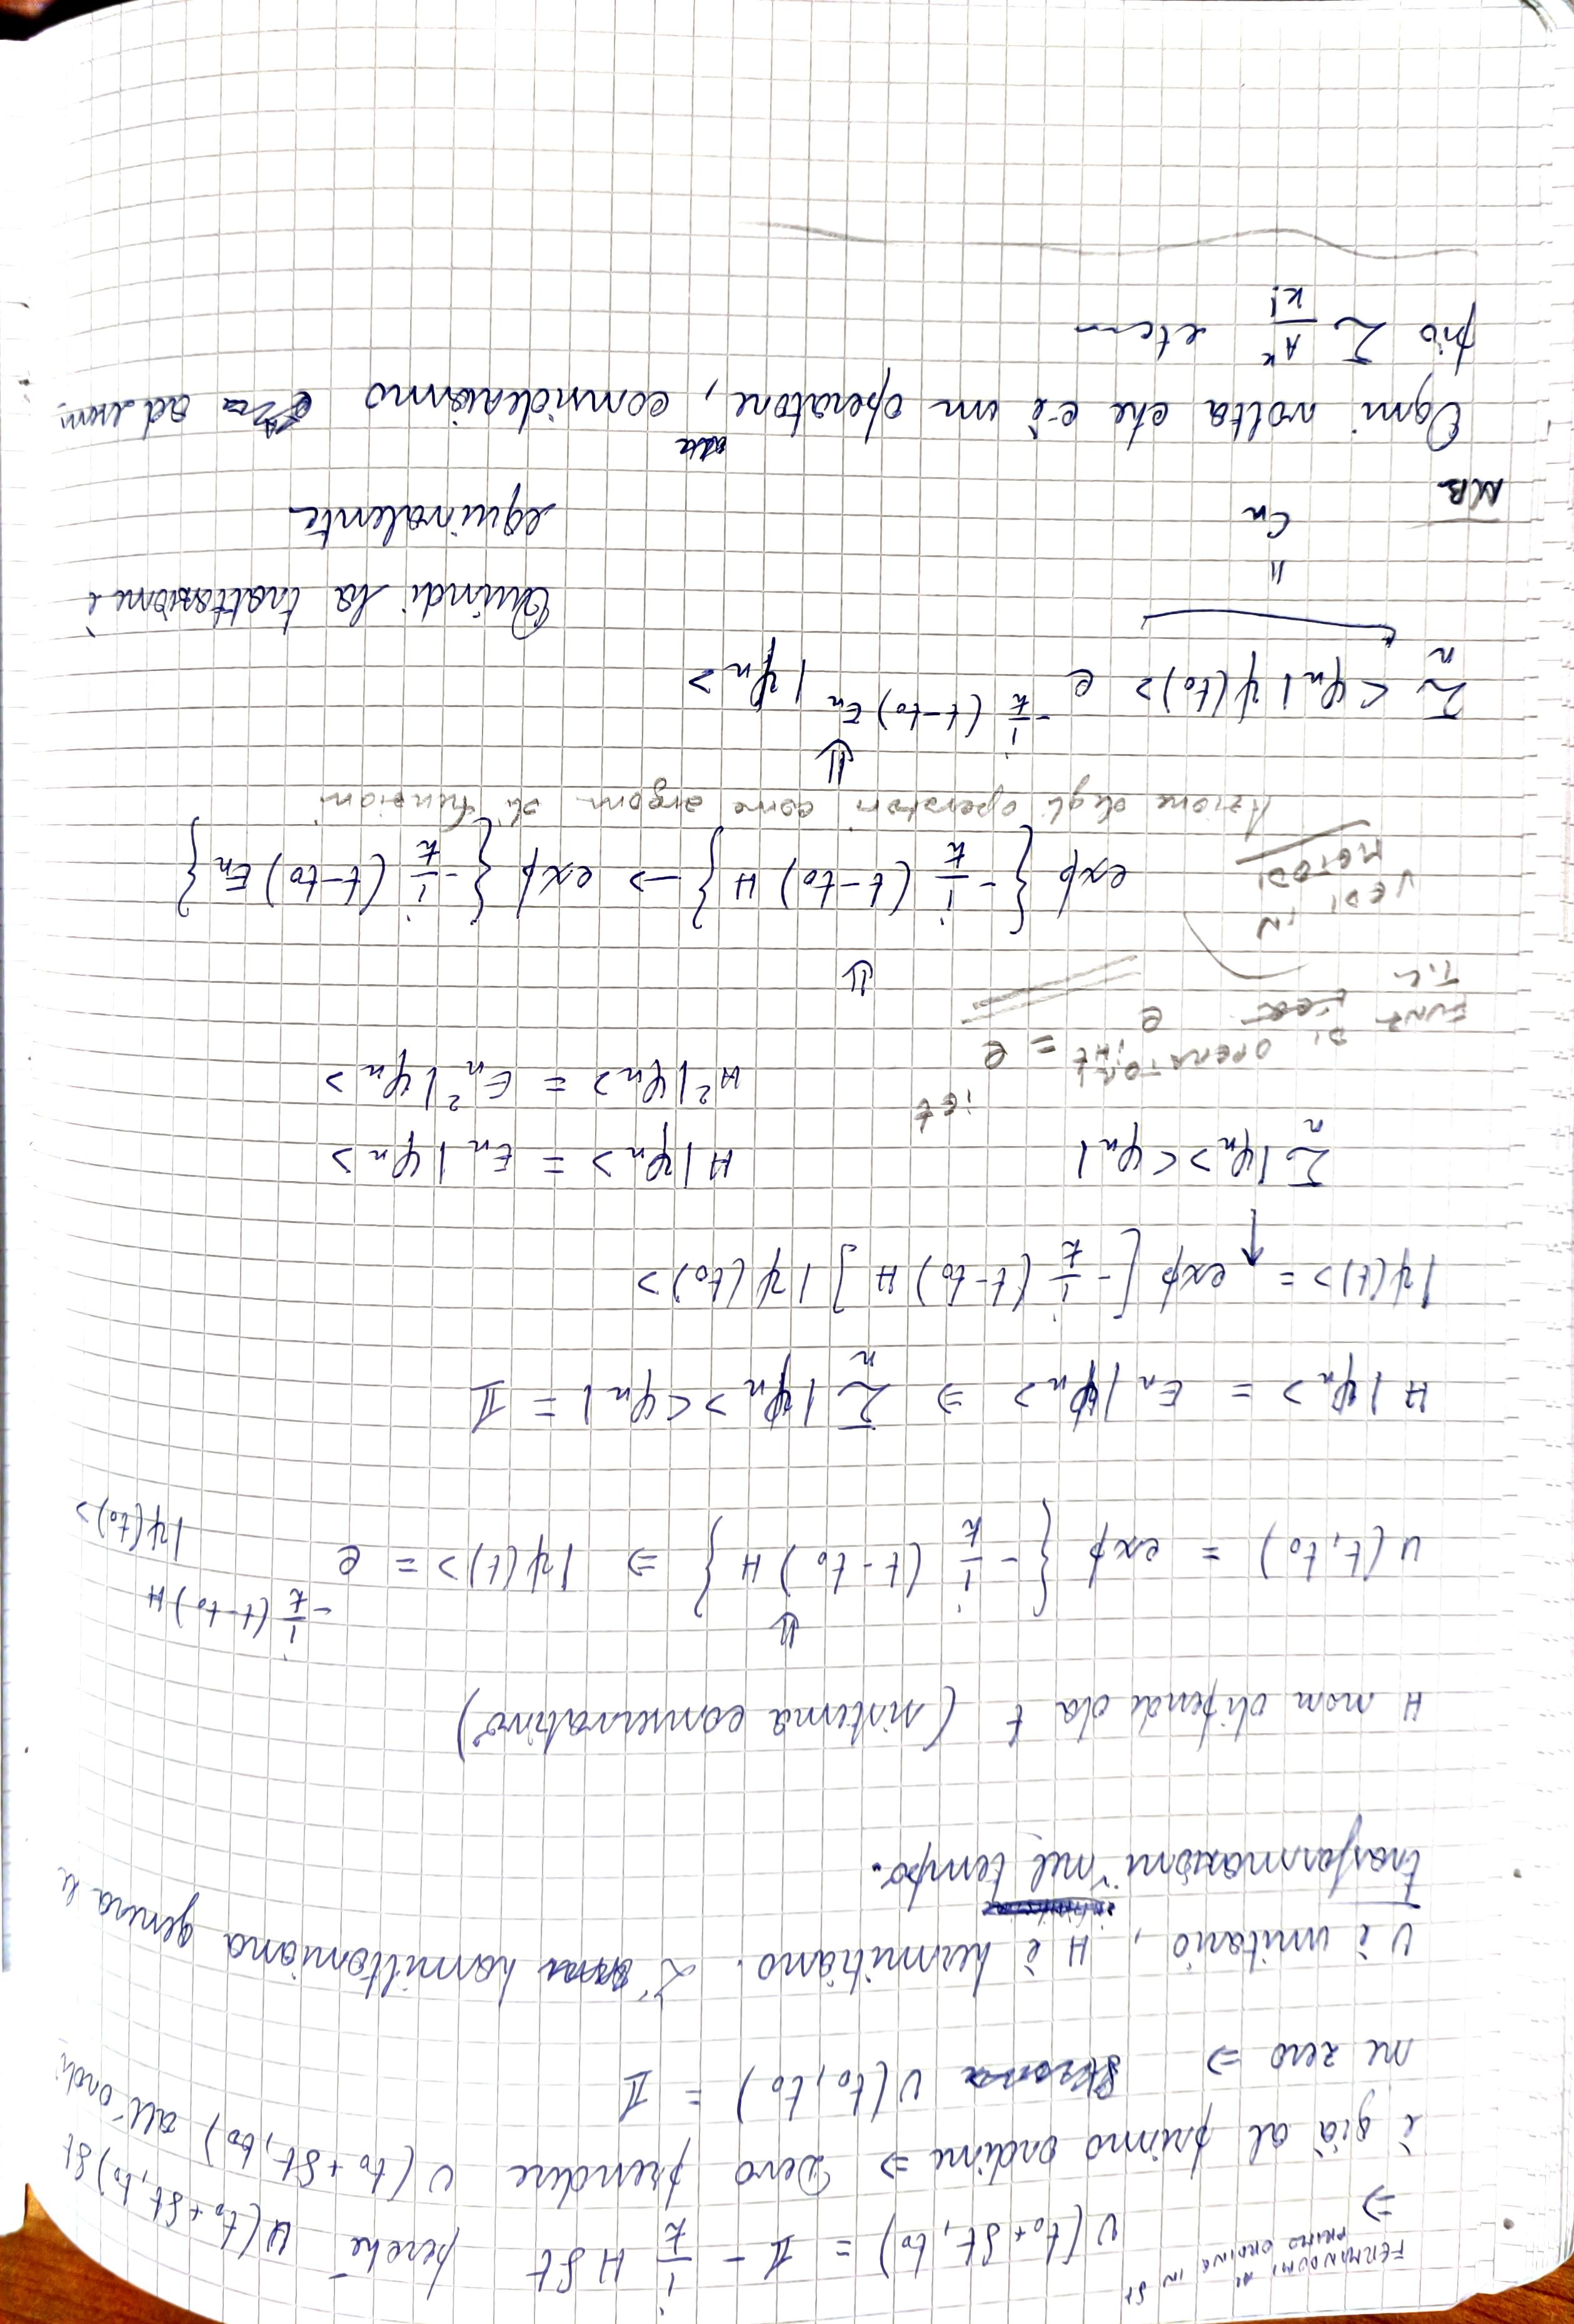 FERMANDOMI AL PRIMO ORDINE IN δt
⇒ U(t₀+δt, t₀) = 𝟙 - i/ħ H δt perché U(t₀+δt, t₀) δt
è già al primo ordine ⇒ Devo prendere U(t₀+δt, t₀) all'ordi
ne zero ⇒ U(t₀, t₀) = 𝟙
U è unitario, H è hermitiano. L' hamiltoniana genera le
trasformazioni nel tempo.
H non dipende da t (sistema conservativo)
⇓
U(t, t₀) = exp {- i/ħ (t-t₀) H} ⇒ |ψ(t)> = e^{- i/ħ (t-t₀) H} |ψ(t₀)>
H |φₙ> = Eₙ |φₙ> ⇒ Σₙ |φₙ><φₙ| = 𝟙
|ψ(t)> = exp [- i/ħ (t-t₀) H] |ψ(t₀)>
↑
Σₙ |φₙ><φₙ| H |φₙ> = Eₙ |φₙ>
H² |φₙ> = Eₙ² |φₙ>
FUNZ DI OPERATORI
T.C. e^{iHt} = e^{iEt}
⇓
VEDI IN METODI
exp {- i/ħ (t-t₀) H} → exp {- i/ħ (t-t₀) Eₙ}
Azione degli operatori come argom di funzioni
⇓
Σₙ <φₙ|ψ(t₀)> e^{- i/ħ (t-t₀) Eₙ} |φₙ>
"
cₙ
Quindi la trattazione è
equivalente
NB
Ogni volta che c'è un operatore, consideriamo ad esem
pio Σ A^k/k! etc